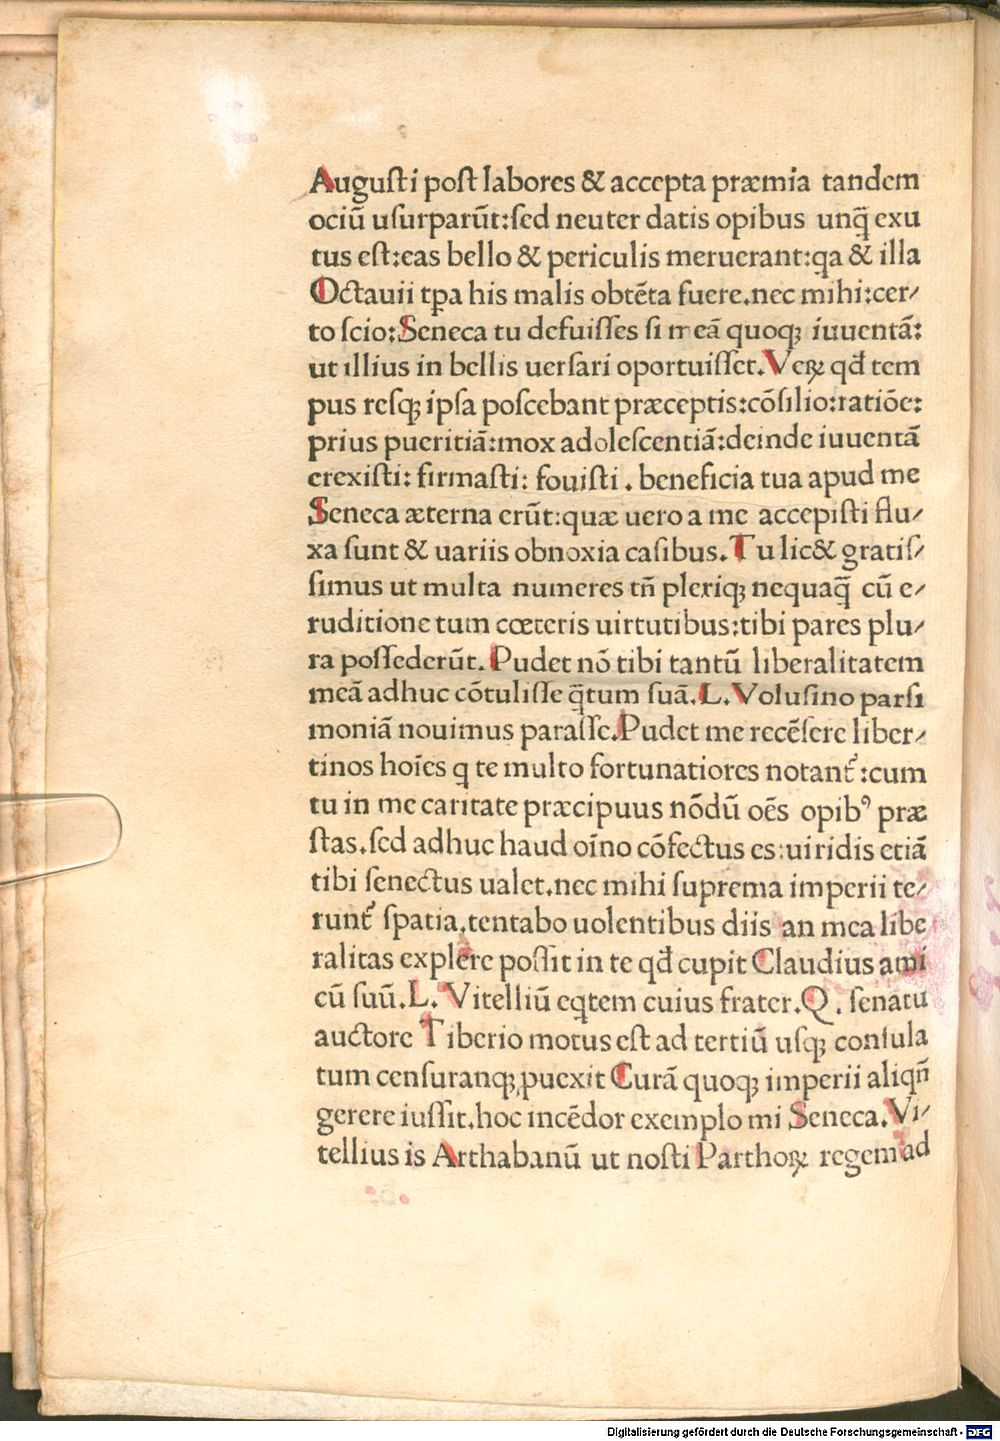 Augusti post labores & accepta præmia tandem
ociū usurparūt:sed neuter datis opibus unq̄ exu
tus est:eas bello & periculis meruerant:qa & illa
Octauii tpa his malis obtēta fuere.nec mihi:cer/
to scio:Seneca tu defuisses si meā quoqꝫ iuuentā:
ut illius in bellis uersari oportuisset.Veꝝ qđ tem
pus resqꝫ ipsa poscebant præceptis:cōsilio:ratiōe:
prius pueritiā:mox adolescentiā:deinde iuuentā
erexisti: firmasti: fouisti . beneficia tua apud me
Seneca æterna erūt:quæ uero a me accepisti flu/
xa sunt & uariis obnoxia casibus.Tu lic& gratis/
simus ut multa numeres tn̄ pleriqꝫ nequaq̄ cū e/
ruditione tum cœteris uirtutibus:tibi pares plu/
ra possederūt.Pudet nō tibi tantū liberalitatem
meā adhuc cōtulisse q̄tum suā.L.Volusino parsi
moniā nouimus parasse.Pudet me recēsere liber/
tinos hoīes q te multo fortunatiores notant᷑:cum
tu in me caritate præcipuus nōdū oēs opibꝰ præ
stas.sed adhuc haud oīno cōfectus es:uiridis etiā
tibi senectus ualet.nec mihi suprema imperii te/
runt᷑ spatia.tentabo uolentibus diis an mea libe
ralitas explere possit in te qđ cupit Claudius ami
cū suū.L. Vitelliū eqtem cuius frater.Q. senatu
auctore Tiberio motus est ad tertiū usqꝫ consula
tum censuranqꝫ puexit Curā quoqꝫ imperii aliqn̄
gerere iussit.hoc incēdor exemplo mi Seneca.Vi/
tellius is Arthabanū ut nosti Parthoꝝ regem ad
Digitalisierung gefördert durch die Deutsche Forschungsgemeinschaft - DFG